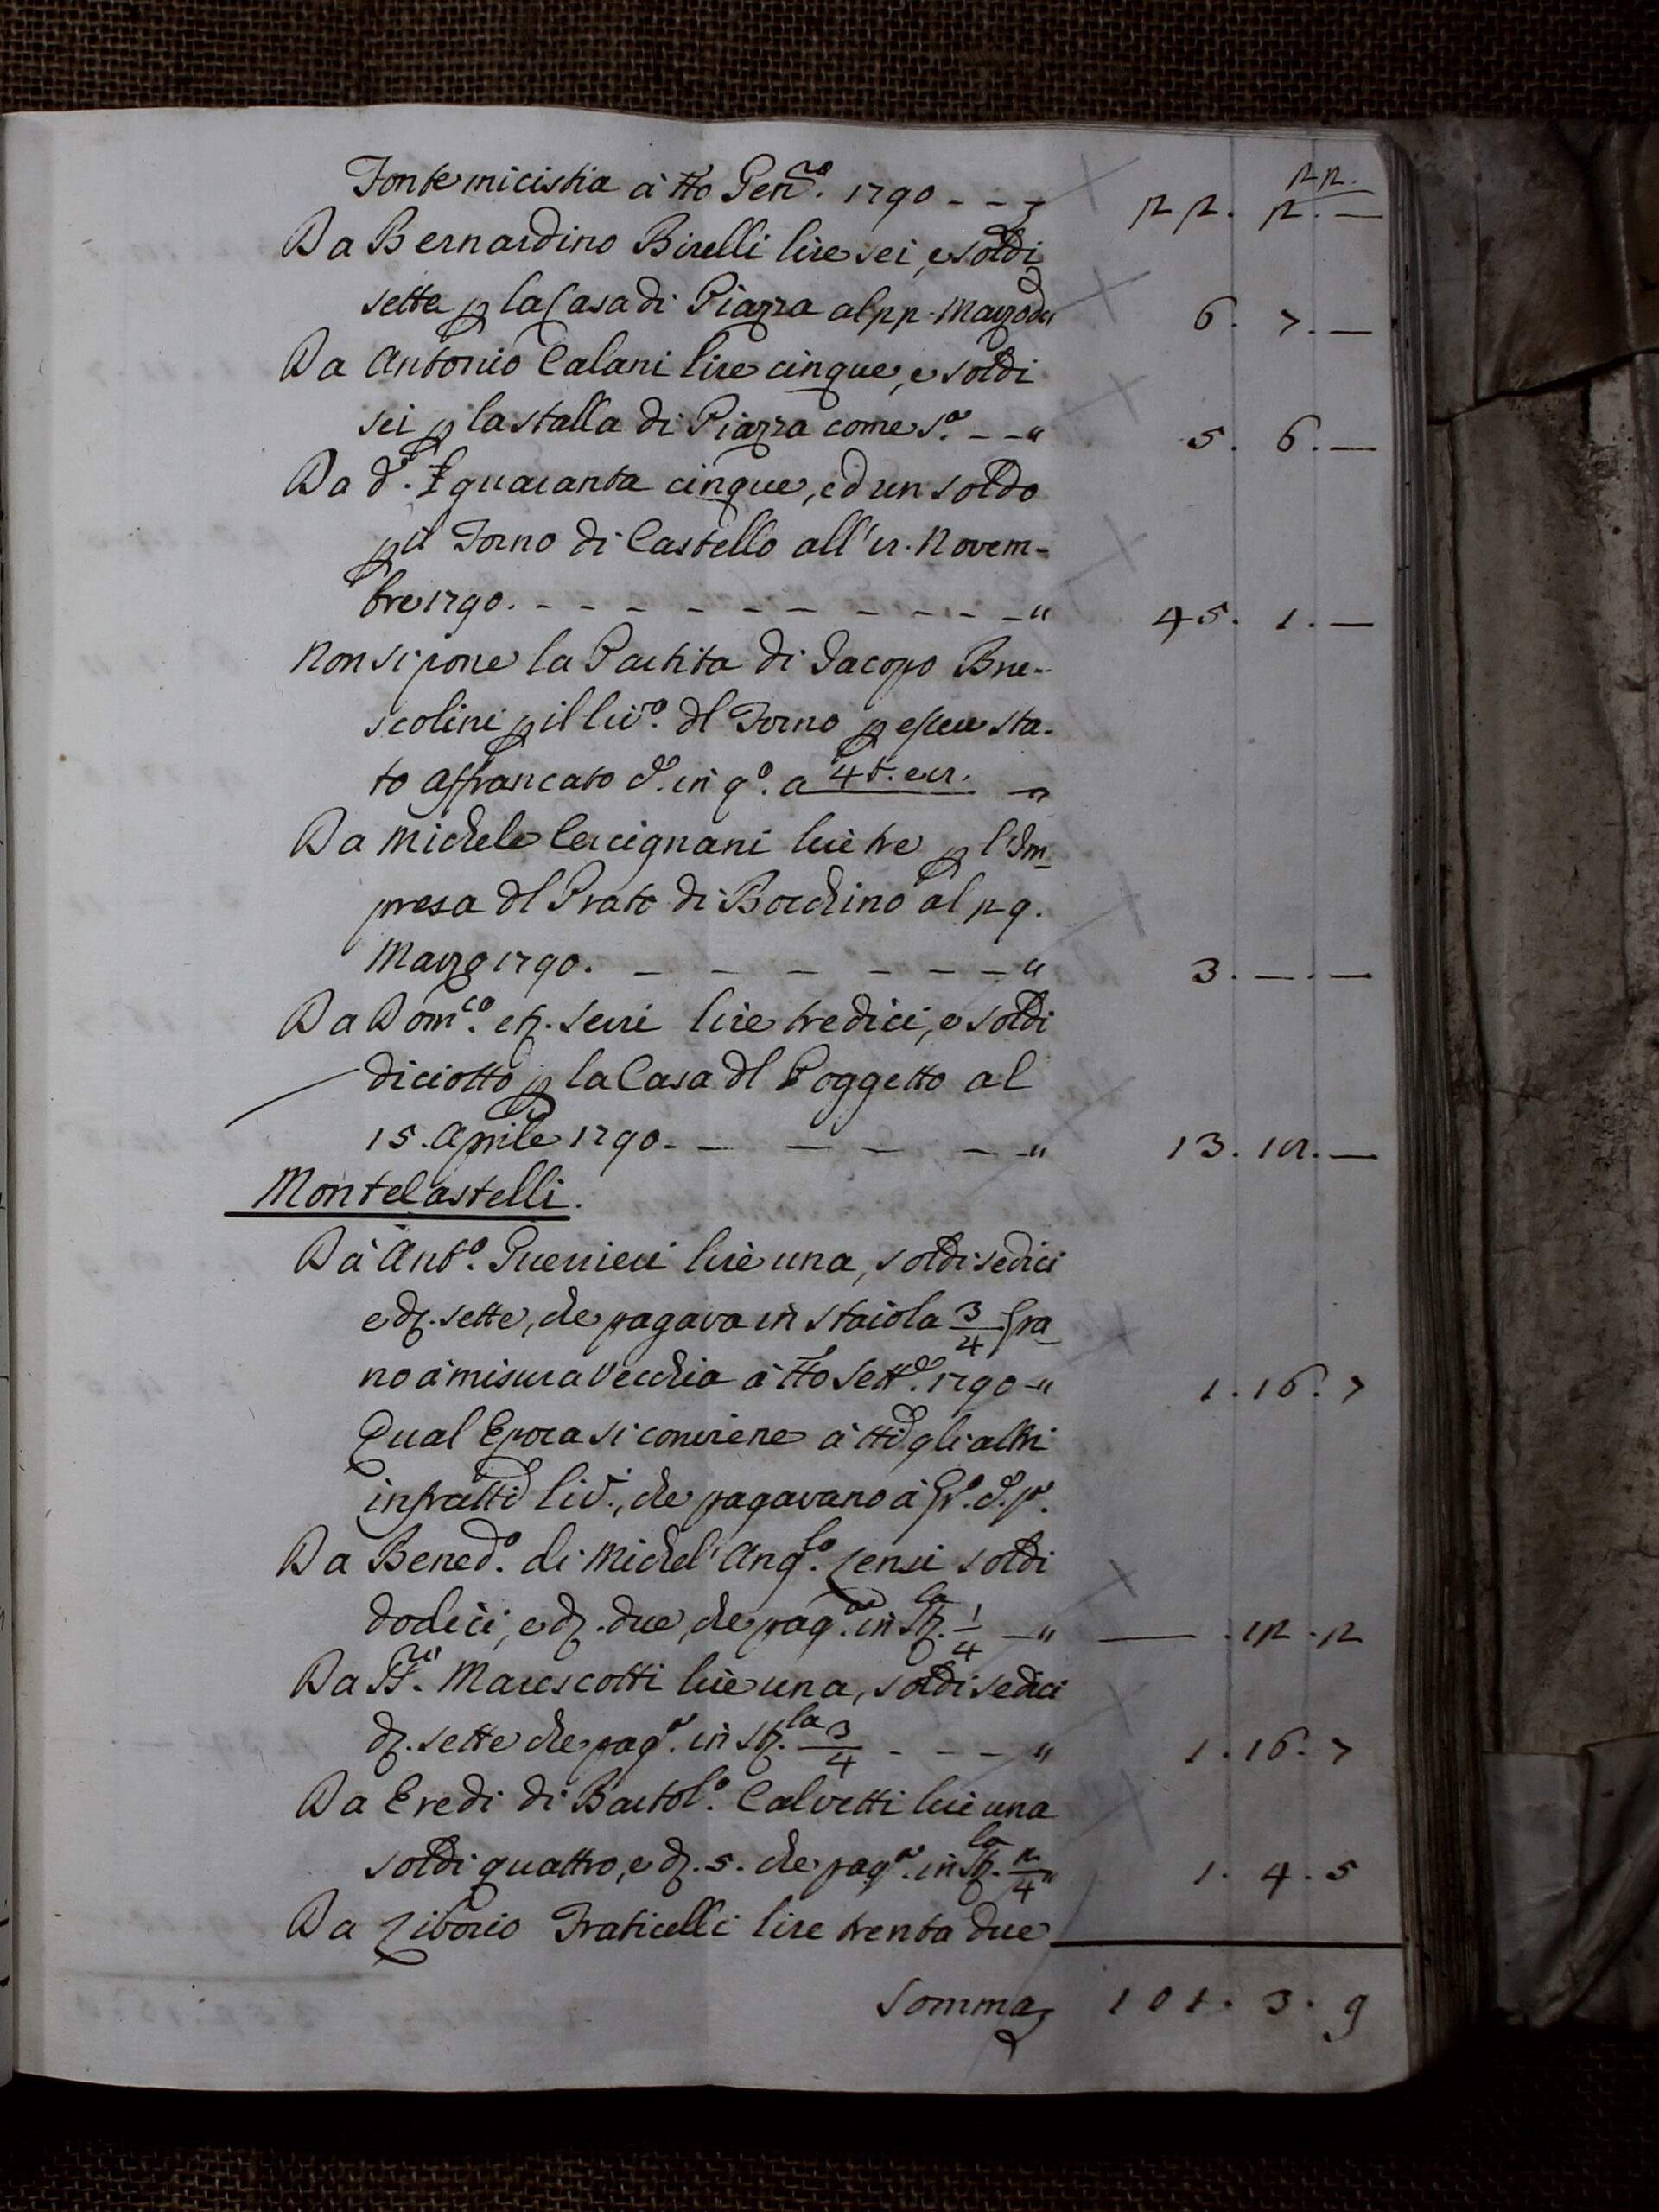 22.
Fontemicistia à tto Genn.ro 1790 - - „ 22. 2. —
Da Bernardino Birelli lire sei, e soldi
sette p la Casa di Piazza al 22. Marzo do 6. 7. —
Da Antonio Calani lire cinque, e soldi
sei p la stalla di Piazza come s.a - - „ 5. 6. —
Da d.o £ quaranta cinque, ed un soldo
p il Forno di Castello all' 8. Novem-
bre 1790. - - - - - - - - - - „ 45. 1. —
Non si pone la Partita di Jacopo Bru-
scolini p il liv.o dl Forno p essere sta-
to affrancato d.o in q.o a 45. e 8. „
Da Michele Cercignani lire tre p l'Im-
presa dl Prato di Bocchino al 29.
Marzo 1790. - - - - - - „ 3. — . —
Da Dom.co etz. Serri lire tredici, e soldi
diciotto p la Casa dl Poggetto al
15. Aprile 1790 - - - - - „ 13. 18. —
MonteCastelli.
Dà Ant.o Guerrieri lire una, soldi sedici
e d. sette, che pagava in staiola 3/4 Gra-
no à misura Vecchia à tto Sett.e 1790 - „ 1. 16. 7
Qual Epoca si conviene à tti gli altri
infratti liv.i, che pagavano à Gr.o d.o p.a
Da Bened.o di Michel' Ang.lo Sensi soldi
dodici, e d. due, che pag.a in St.la 1/4 - „ — . 12. 2
Da Marescotti lire una, soldi sedici
d. sette che pag.a in St.la 3/4 - - - „ 1. 16. 7
Da Eredi di Bartol.o Calvetti lire una
soldi quattro, e d. 5. che pag.a in St.la 2/4 „ 1. 4. 5
Da Liborio Fraticelli lire trenta due
Somma 101. 3. 9